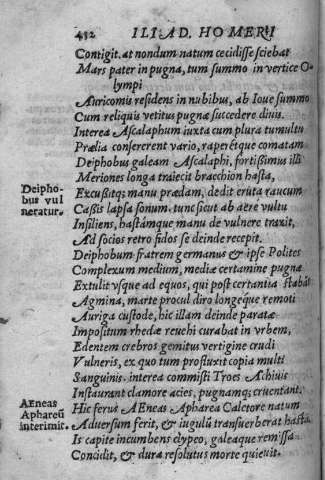 432 ILIAD. HOMERI
Contigit. at nondum natum cecidisse sciebat
Mars pater in pugna, tum summo in vertice O-
lympi
Auricomis residens in nubibus, ab Ioue summo
Cum reliquis vetitus pugnæ succedere diuis.
Interea Ascalaphum iuxta cum plura tumultu
Prælia consererent vario, raperetque comatam
Deiphobus galeam Ascalaphi, fortißimus illi
Meriones longa traiecit bracchion hasta,
Deipho-
bus vul
neratur.
Excußitq; manu prædam, dedit eruta raucum
Caßis lapsa sonum. tunc sicut ab aere vultu
Insiliens, hastámque manu de vulnere traxit,
Ad socios retro fidos se deinde recepit.
Deiphobum fratrem germanus & ipse Polites
Complexum medium, mediæ certamine pugnæ
Extulit vsque ad equos, qui post certantia stabāt
Agmina, marte procul diro longeque remoti
Auriga custode, hic illam deinde paratæ
Impositum rhedæ reuehi curabat in vrbem,
Edentem crebros gemitus vertigine crudi
Vulneris, ex quo tum profluxit copia multi
Sanguinis. interea commisti Troes Achiuis
Instaurant clamore acies, pugnamq; cruentant.
AEneas
Aphareū
interimit.
Hic ferus AEneas Apharea Calctore natum
Aduersum ferit, & iugulū transuerberat hasta.
Is capite incumbens clypeo, galeaque remissa
Concidit, & dura resolutus morte quieuit.